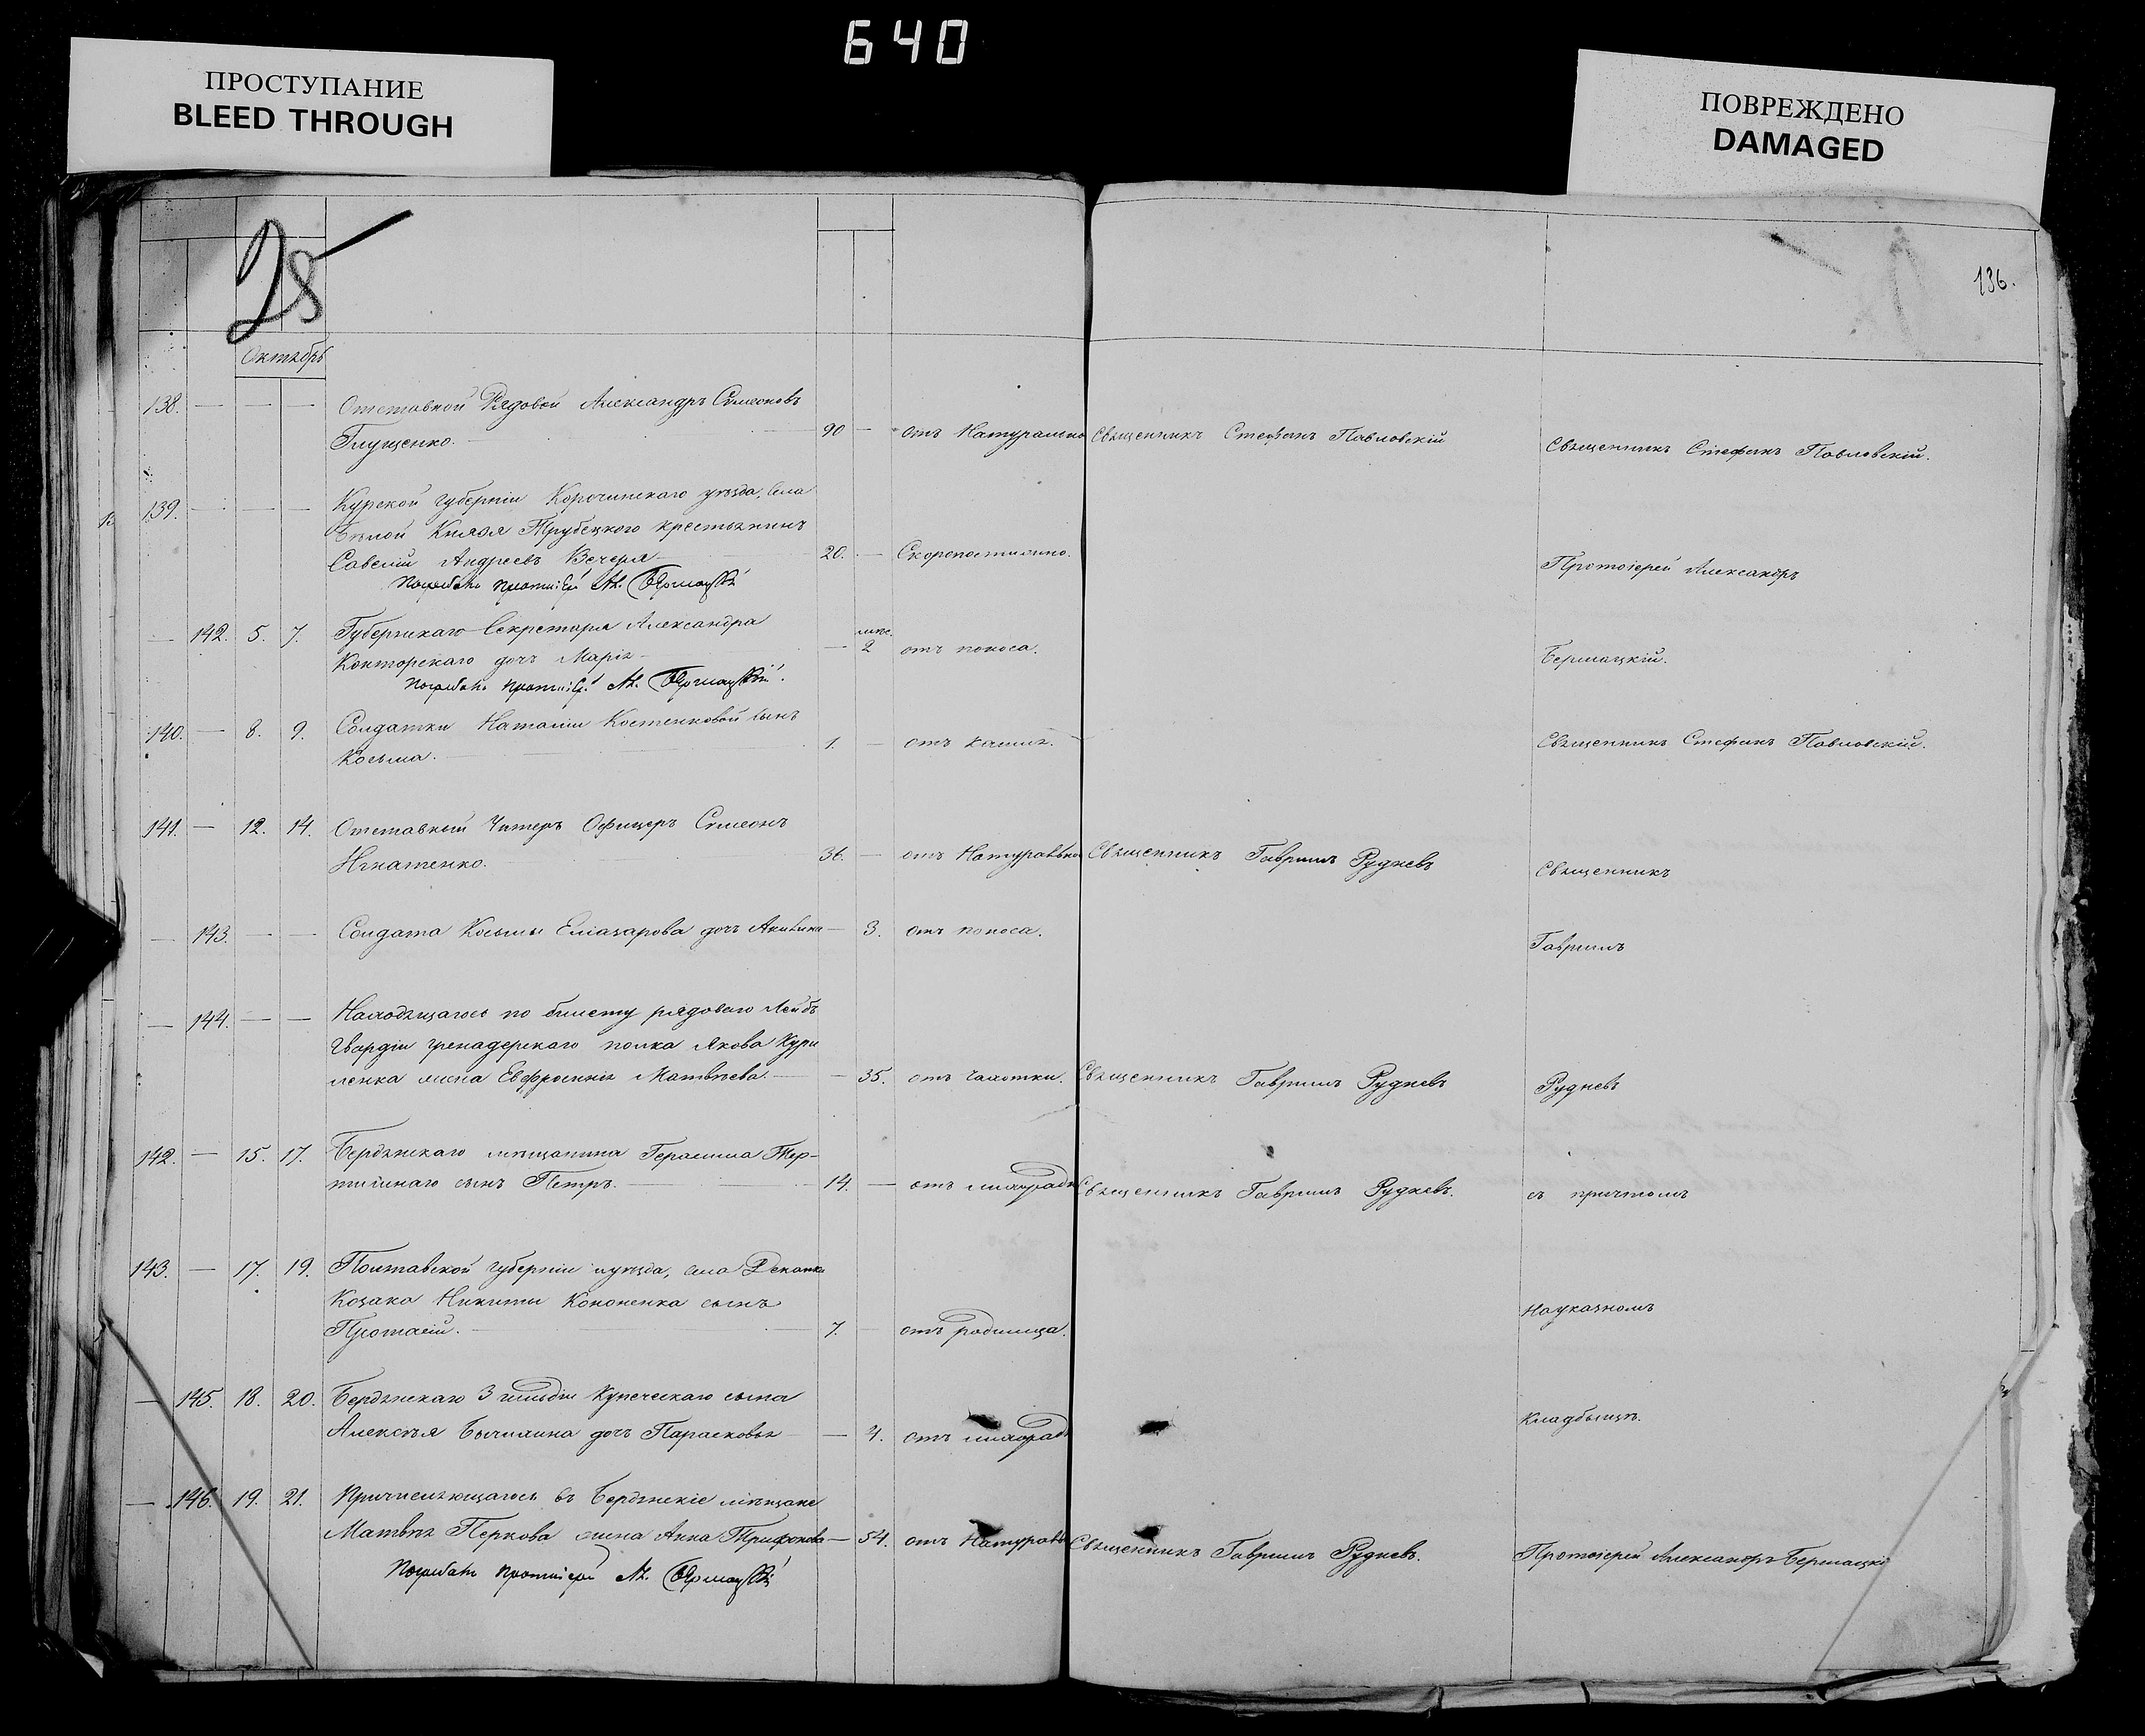 640
ПРОСТУПАНИЕ
BLEED THROUGH
ПОВРЕЖДЕНО
DAMAGED
28
136.
Октябрь
138. — — — Отставной Рядовой Александръ Симеоновъ
Глущенко. — 90 — отъ Натурально Священникъ Стефанъ Павловскій Священникъ Стефанъ Павловскій.
139. — — — Курской губерніи Корочинскаго уѣзда, села
Бѣлой Князя Трубецкого крестьянинъ
Савелій Андреевъ Вечеря 20. — Скоропостижно. Протоіерей Александръ
Погребалъ протоіерей Ал. Бершацкій
— 142. 5. 7. Губернскаго Секретаря Александра
Конторскаго дочь Марія — — 2 отъ поноса. Бершацкій.
Погребалъ протоіерей Ал. Бершацкій.
140. — 8. 9. Солдатки Наталіи Костенковой сынъ
Косьма. 1. — отъ кашля. Священникъ Стефанъ Павловскій.
141. — 12. 14. Отставный Унтеръ Офицеръ Симеонъ
Игнатенко. 36. — отъ Натурально Священникъ Гавріилъ Рудневъ Священникъ
— 143. — — Солдата Косьмы Еліазарова дочь Акилина — 3. отъ поноса. Гавріилъ
— 144. — — Находящагося по билету рядоваго Лейбъ
Гвардіи гренадерскаго полка Якова Кури
ленка жена Евфросинія Матвѣева. — 35. отъ чахотки. Священникъ Гавріилъ Рудневъ Рудневъ
142. — 15. 17. Бердянскаго мѣщанина Герасима Тер-
тишнаго сынъ Петръ. 14. — отъ лихорадк Священникъ Гавріилъ Рудневъ. съ причтомъ
143. — 17. 19. Полтавской губерніи и уѣзда, села Диканки
Козака Никиты Кононенка сынъ
Протасій. 7. — отъ родимца. На указномъ
— 145. 18. 20. Бердянскаго 3 гильдіи купеческаго сына
Алексѣя дочь Парасковья — 4. отъ лихорад Кладбищѣ.
— 146. 19. 21. Причисляющагося въ Бердянскіе мѣщане
Матвѣя Перкова жена Анна Трифонова — 54. отъ Натураль Священникъ Гавріилъ Рудневъ. Протоіерей Александръ Бершацкій
Погребалъ протоіерей Ал. Бершацкій